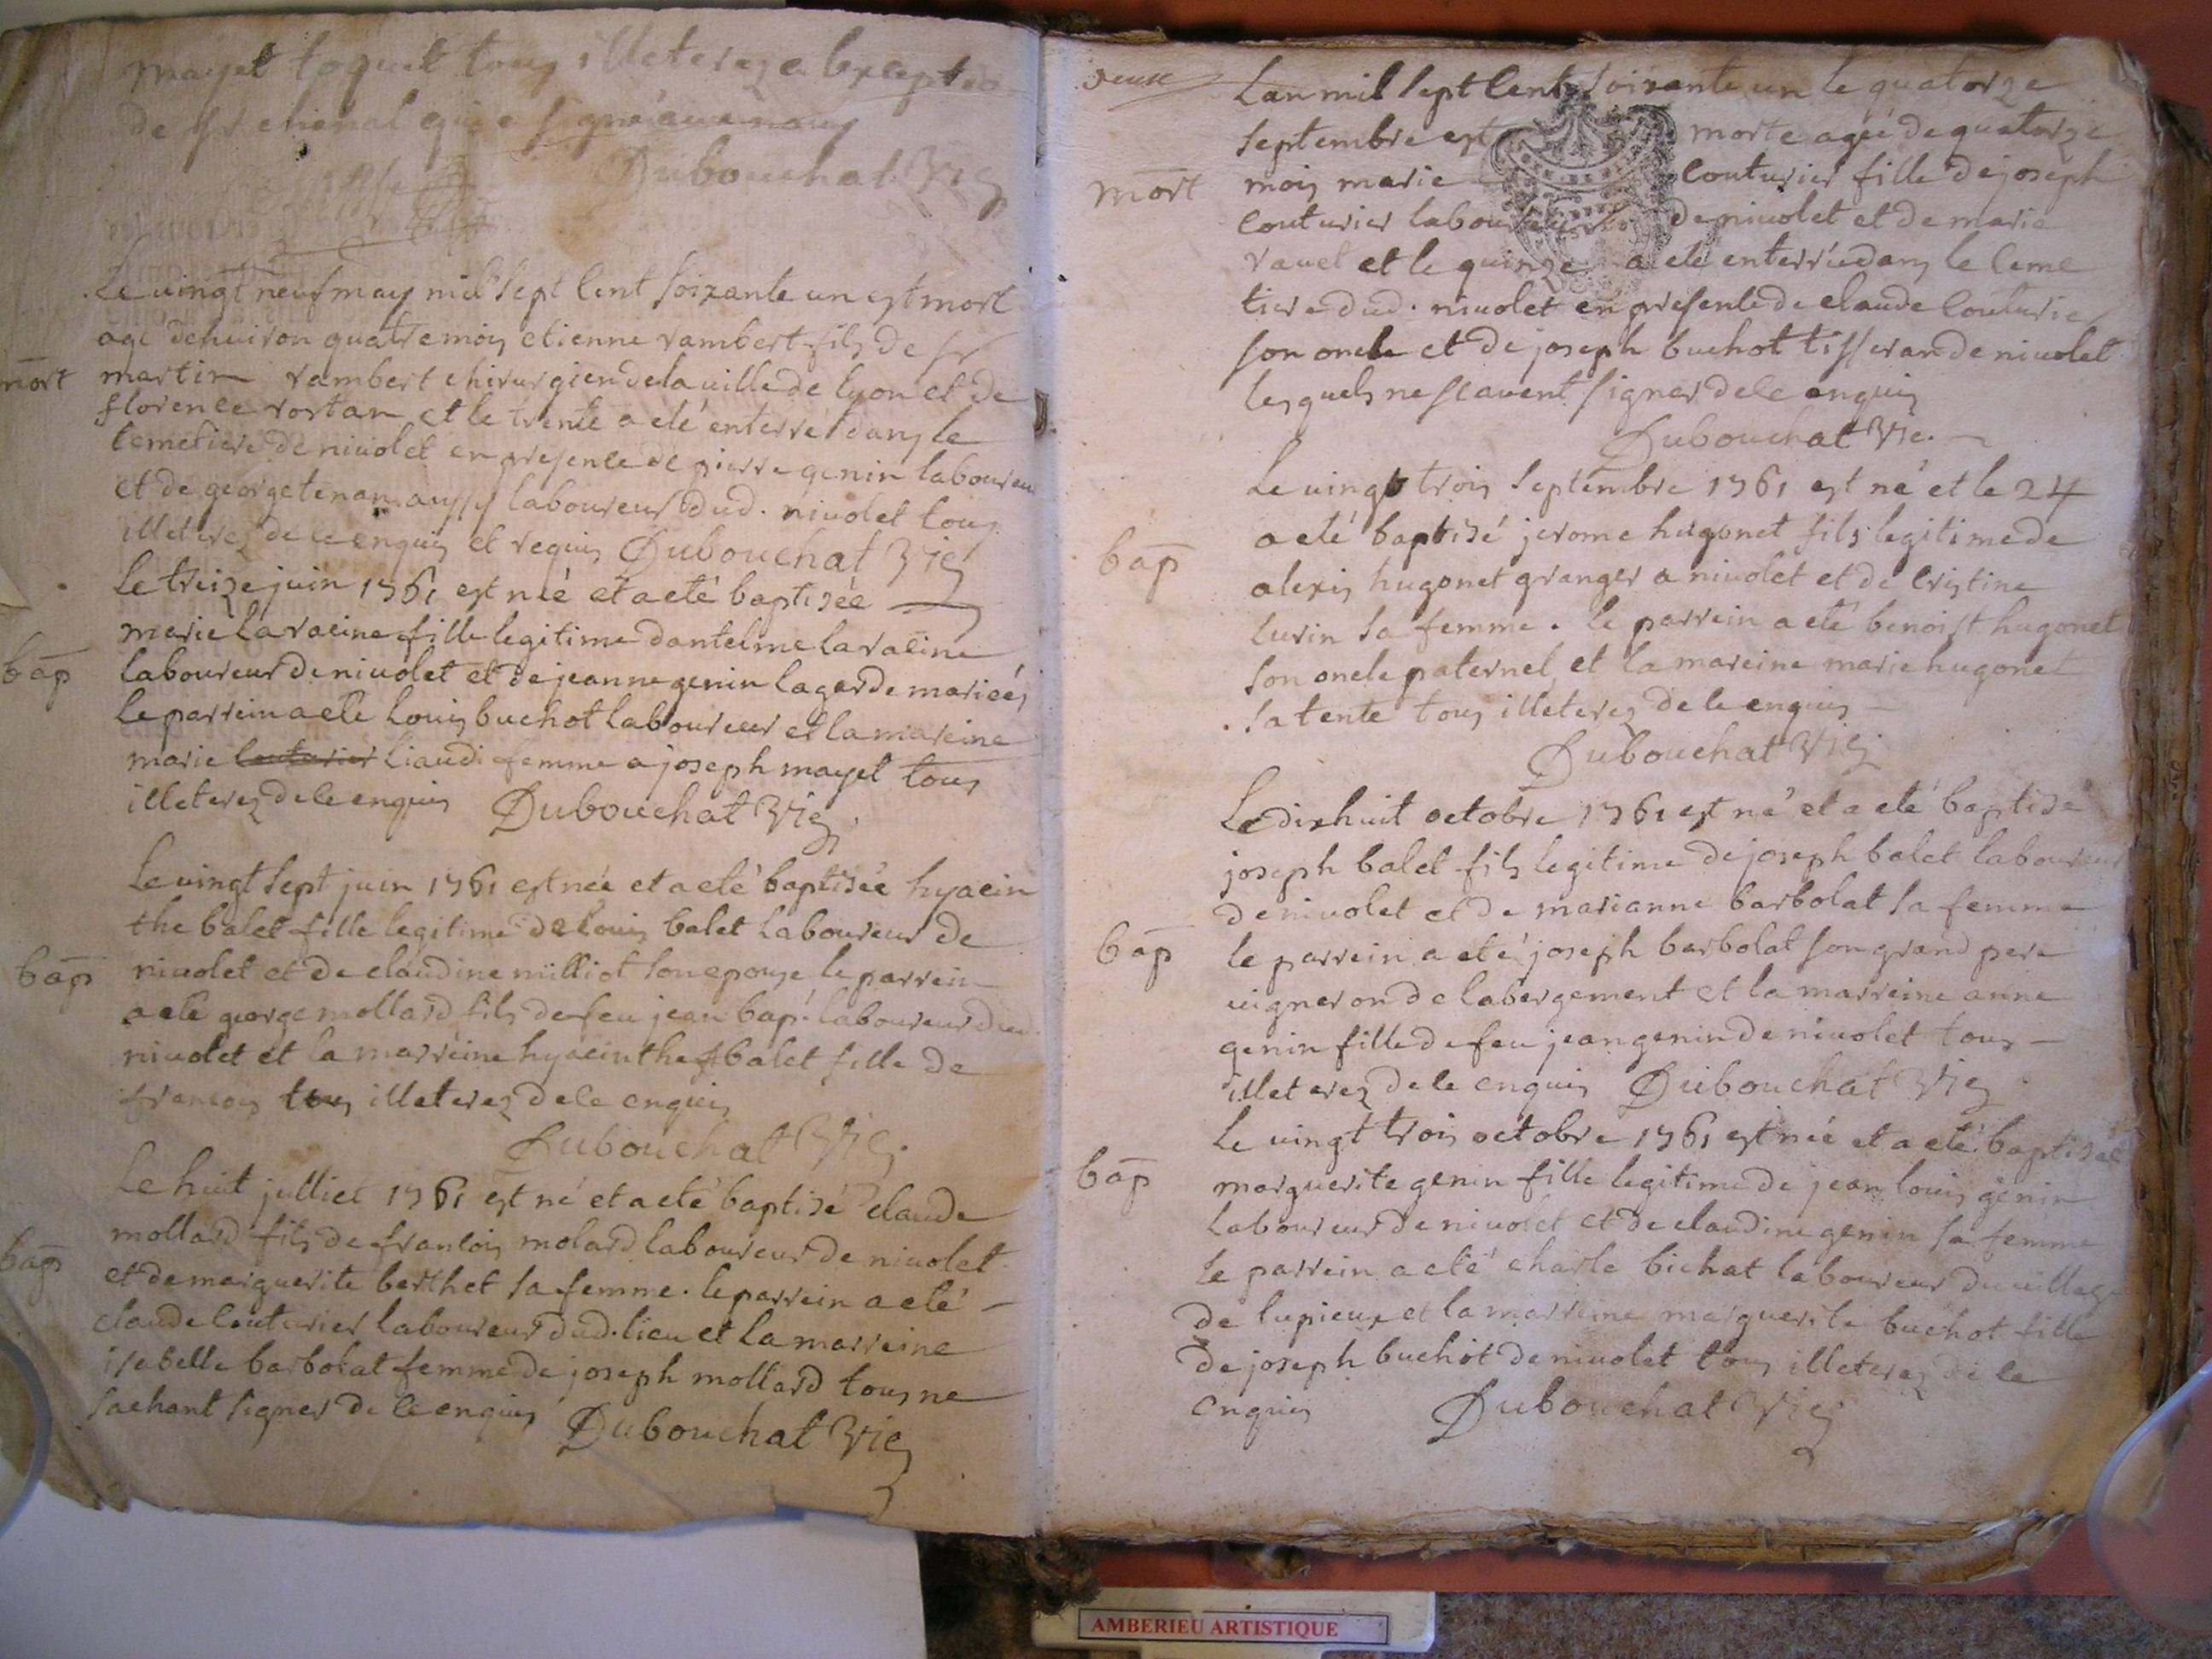 mayet toquet tous illeterez a lexception
de sr chenal qui a signé avec nous
Dubouchat Vic
Le vingt neuf may mil sept cent soixante un est mort
agé denuiron quatre mois etienne rambert fils de sr
mort
martin rambert chirurgien de la uille de lyon et de
florence rostan et le trente a eté enterré dans le
cemetiere de niuolet en presence de pierre genin laboureur
et de george tenan aussy laboureur dud. niuolet tous
illeterez de ce enquis et requis Dubouchat Vic
Le treize juin 1761 est née et a eté baptisée
marie lavacine fille legitime dantelme lavacine
bap
laboureur de niuolet et de jeanne genin lagarde mariés
le parrein a eté louis buchot laboureur et la mareine
marie couturier liaudi femme a joseph mayet tous
illeterez de ce enquis Dubouchat Vic
Le vingt sept juin 1761 est née et a eté baptisée hyacin
the balet fille legitime de louis balet laboureur de
bap
niuolet et de claudine nülliot son epouse le parrein
a eté george mollard fils de feu jean bap. laboureur dud.
niuolet et la marreine hyacinthe balet fille de
francois tous illeterez de ce enquis
Dubouchat Vic
Le huit julliet 1761 est né et a eté baptisé claude
mollard fils de francois molard laboureur de niuolet
bap
et de marguerite berthet sa femme. le parrein a eté
claude couturier laboureur dud. lieu et la marreine
isabelle barbolat femme de joseph mollard tous ne
sachant signer de ce enquis Dubouchat Vic
Lan mil sept cent soixante un le quatorze
septembre est morte agée de quatorze
mort
mois marie couturier fille de joseph
couturier laboureur de niuolet et de marie
ravet et le quinze a eté enterrée dans le ceme
tiere dud. niuolet en presence de claude couturier
son oncle et de joseph buchot tisseran de niuolet
lesquels ne scauent signer de ce enquis
Dubouchat Vic.
Le uingt trois septembre 1761 est né et le 24
a eté baptisé jerome hugonet fils legitime de
bap
alexis hugonet granger a niuolet et de cristine
curin sa femme. le parrein a eté benoist hugonet
son oncle paternel et la mareine marie hugonet
sa tente tous illeterez de ce enquis
Dubouchat Vic
Le dixhuit octobre 1761 est né et a eté baptisé
joseph balet fils legitime de joseph balet laboureur
de niuolet et de marianne barbolat sa femme
bap
le parrein a eté joseph barbolat son grand pere
uigneron de labergement et la marreine anne
genin fille de feu jean genin de niuolet tous
illeterez de ce enquis Dubouchat Vic
Le uingt trois octobre 1761 est née et a eté baptisée
bap
marguerite genin fille legitime de jean louis genin
laboureur de niuolet et de claudine genin sa femme
le parrein a eté charle bichat laboureur du uillage
de lupieux et la marreine marguerite buchot fille
de joseph buchot de niuolet tous illeterez de ce
enquis Dubouchat Vic
AMBERIEU ARTISTIQUE